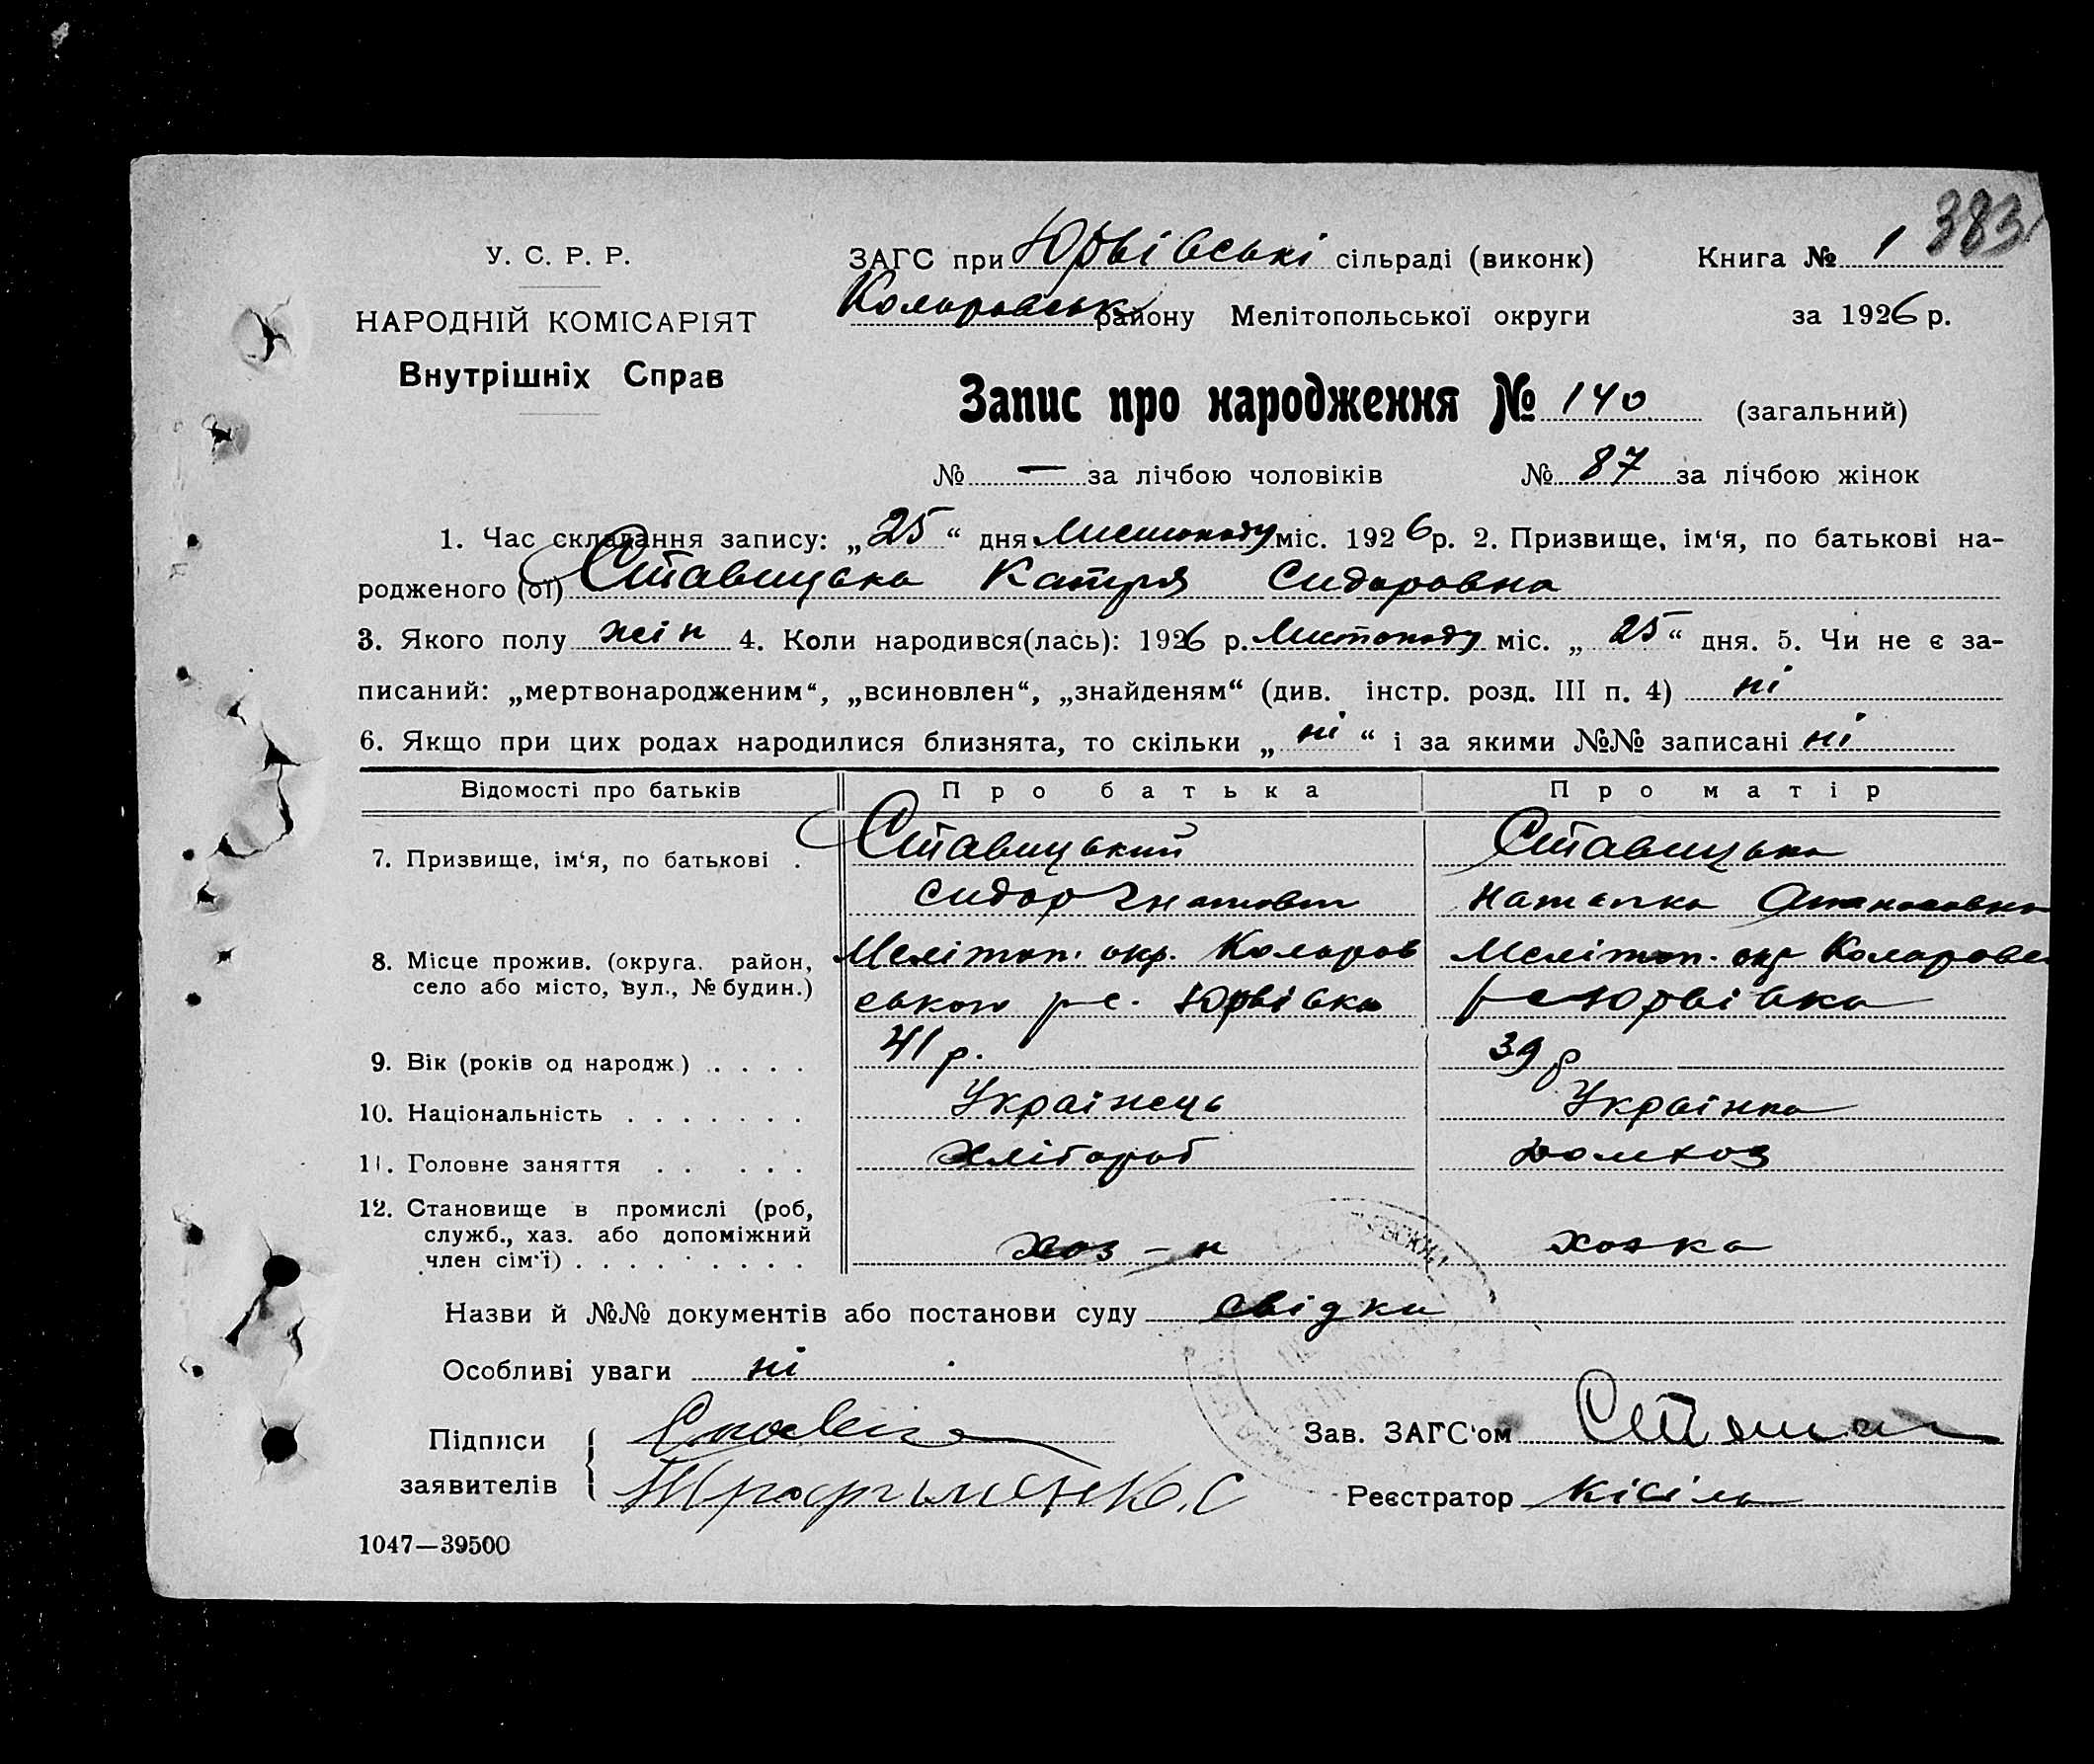 383
У. С. Р. Р.
НАРОДНІЙ КОМІСАРІЯТ
Внутрішніх Справ
ЗАГС при Юрвівські сільраді (виконк) Книга № 1
Коларовськ району Мелітопольської округи за 1926 р.
Запис про народження № 140 (загальний)
№ — за лічбою чоловіків № 87 за лічбою жінок
1. Час складання запису: „25“ дня Листопаду міс. 1926 р. 2. Призвище, ім‘я, по батькові на-
родженого (ої) Ставицька Катря Сидоровна
3. Якого полу жін 4. Коли народився(лась): 1926 р. Листопаду міс. „25“ дня. 5. Чи не є за-
писаний: „мертвонародженим“, „всиновлен“, „знайденям“ (див. інстр. розд. III п. 4) ні
6. Якщо при цих родах народилися близнята, то скільки „ні“ і за якими №№ записані ні
Відомості про батьків Про батька Про матір
7. Призвище, ім‘я, по батькові . Ставицький Ставицька
Сидор Гнатович Наталка
8. Місце прожив. (округа, район, Меліоп. окр. Коларов Меліоп. окр Коларовс
село або місто, вул., № будин.) ського р с. Юрвівка р с Юрвівка
9. Вік (років од народж) . . . . 41 р. 39 р
10. Національність . . . . . . . Українець Українка
11. Головне заняття . . . . . Хлібороб домхоз
12. Становище в промислі (роб,
служб., хаз. або допоміжний хоз-н хозка
член сім‘ї) . . . . . . . . .
Назви й №№ документів або постанови суду свідки
Особливі уваги ні
Підписи Зав. ЗАГС‘ом
заявителів Реєстратор Кісіль
1047—39500